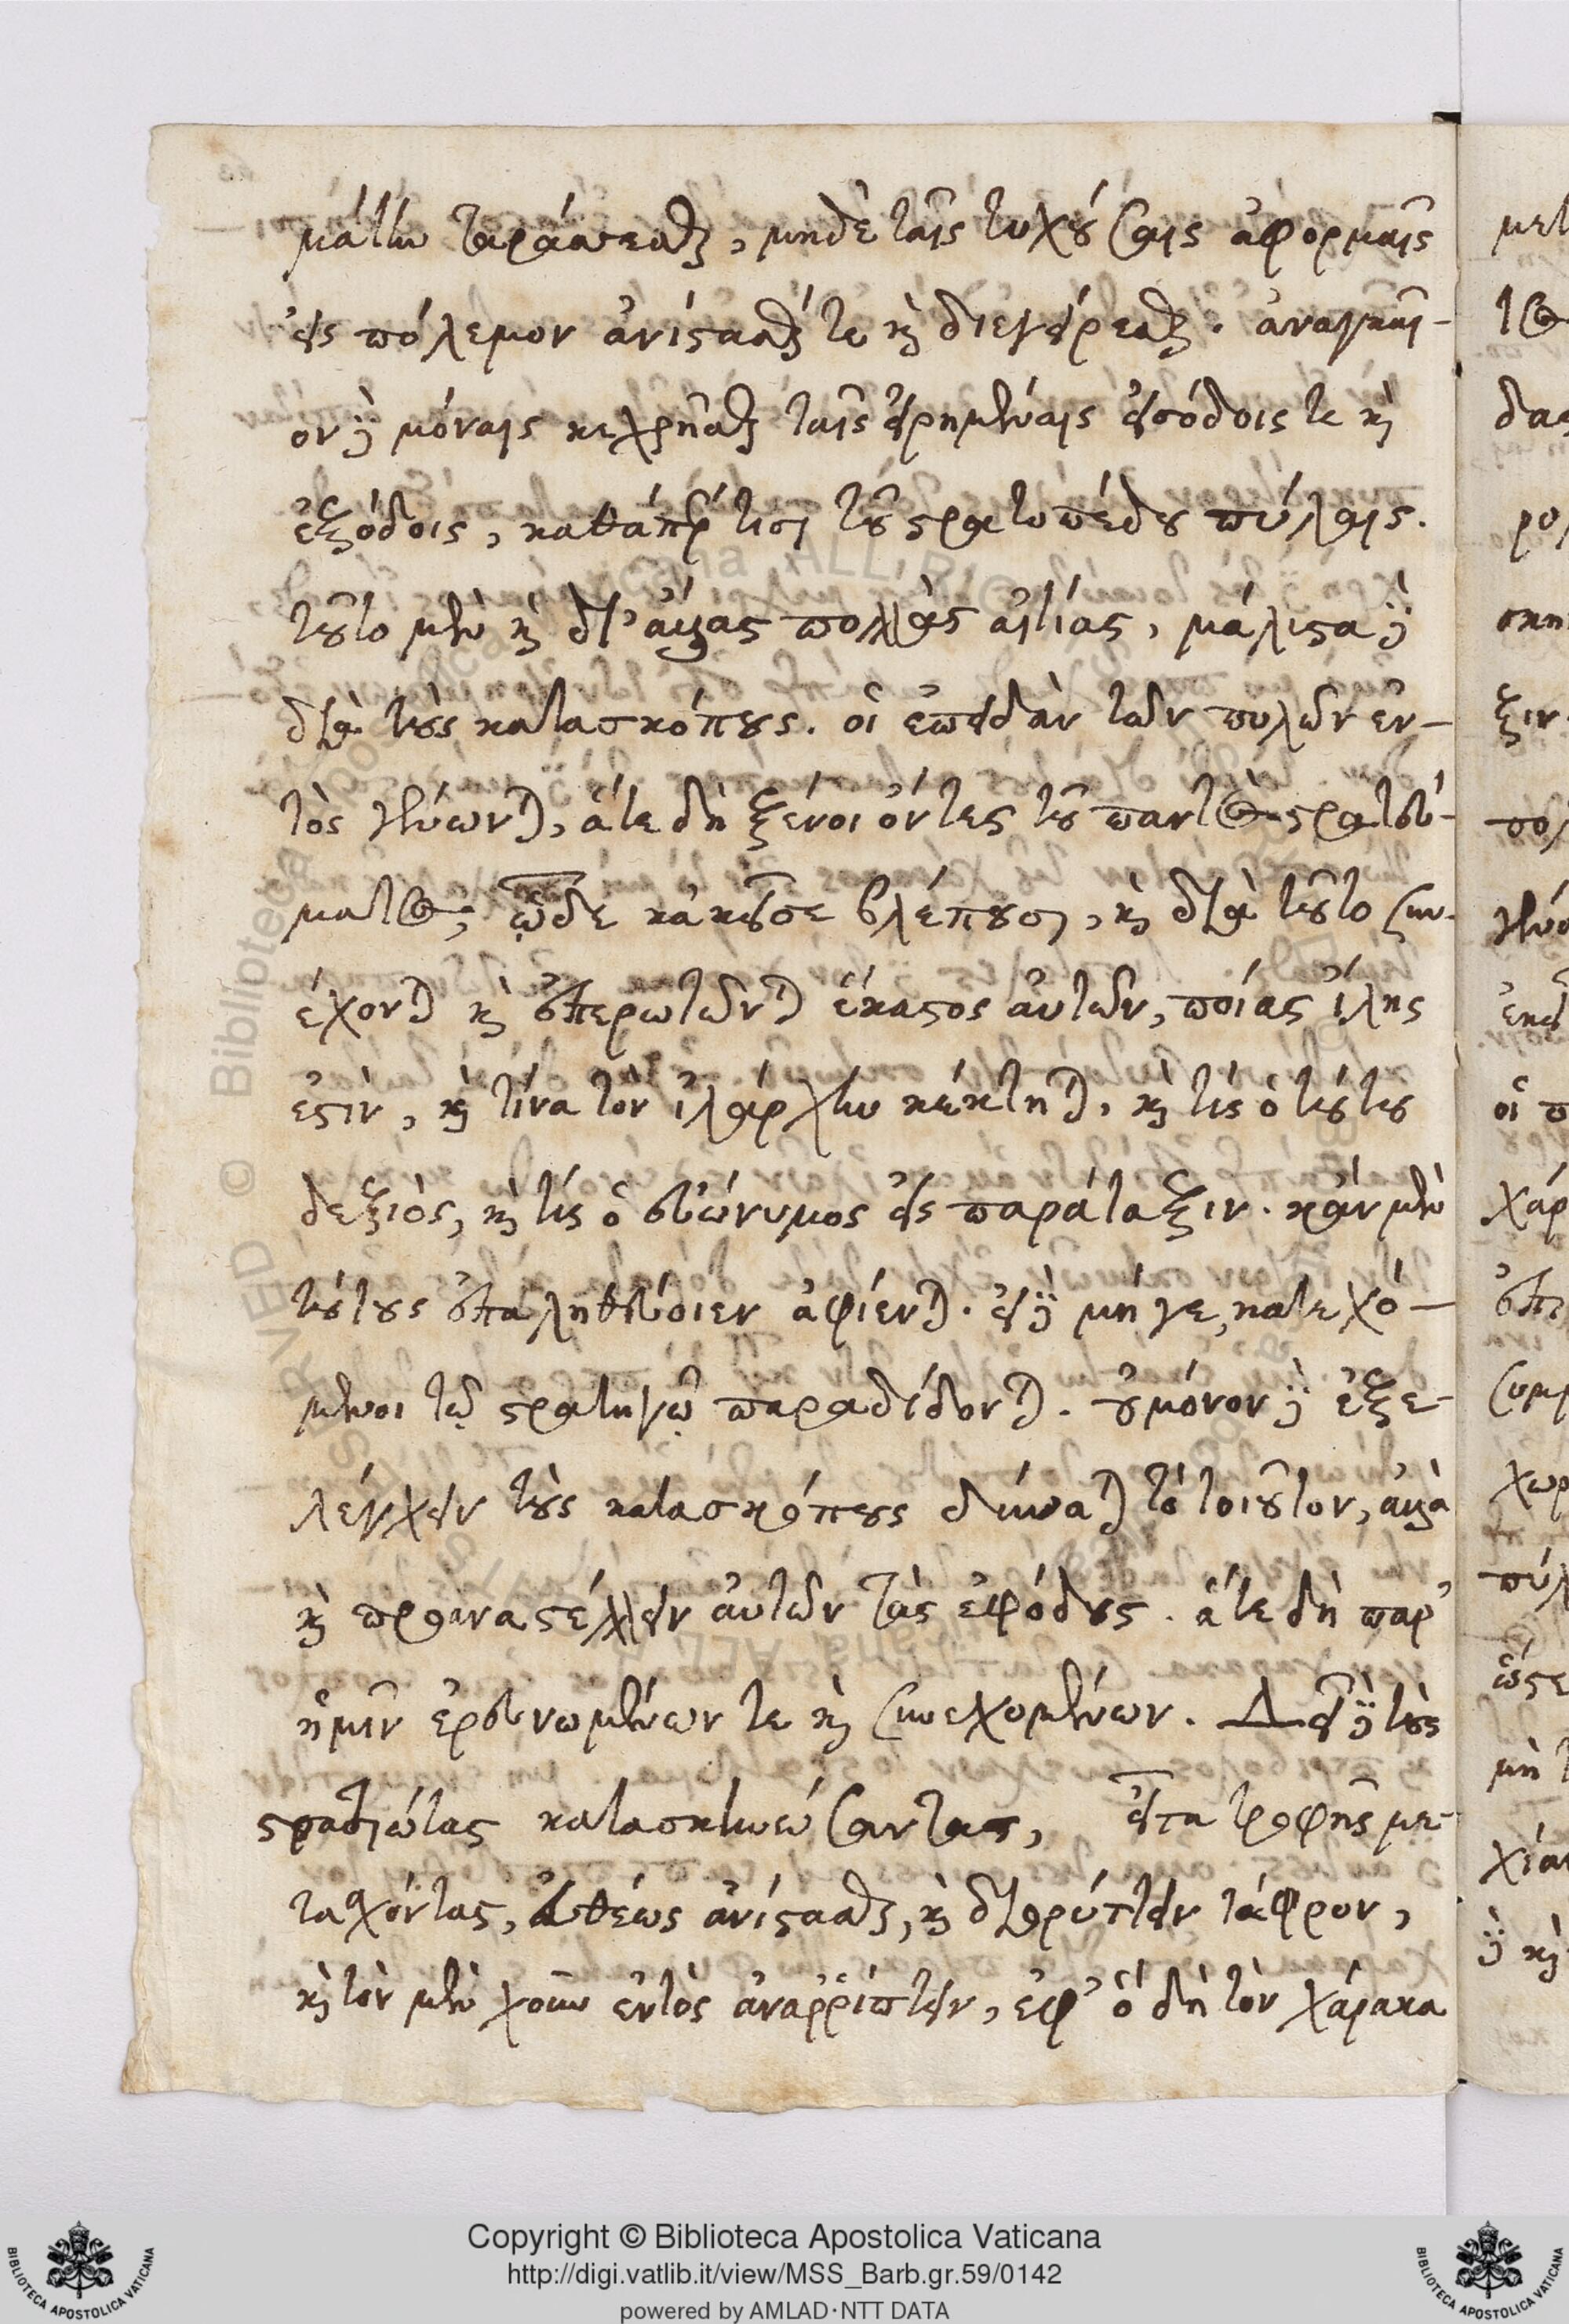 μάτην ταράσσεσθαι, μηδὲ ταῖς τυχούσαις ἀφορμαῖς
εἰς πόλεμον ἀνίστασθαί τε καὶ διεγείρεσθαι. ἀναγκαῖ-
ον δὲ μόναις κεχρῆσθαι ταῖς εἰρημέναις εἰσόδοις τε καὶ
ἐξόδοις, καθάπερ τισὶ τοῦ στρατοπέδου πύλαις.
τοῦτο μὲν καὶ δι' ἄλλας πολλὰς αἰτίας, μάλιστα δὲ
διὰ τοὺς κατασκόπους. οἳ ἐπειδὰν τῶν πυλῶν ἐν-
τὸς γένωνται, ἅτε δὴ ξένοι ὄντες τοῦ παντὸς στρατεύ-
ματος, ὧδε κἀκεῖσε βλέπουσι, καὶ διὰ τοῦτο συν-
έχονται καὶ ἐπερωτῶνται ἕκαστος αὐτῶν, ποίας ἴλης
ἐστὶν, καὶ τίνα τὸν ἰλάρχην κέκτηται, καὶ τίς ὁ τούτου
δεξιὸς, καὶ τίς ὁ εὐώνυμος εἰς παράταξιν. κἂν μὲν
τούτους ἐπαληθεύσιεν ἀφίενται. εἰ δὲ μή γε, κατεχό-
μενοι τῷ στρατηγῷ παραδίδονται. οὐ μόνον δὲ ἐξε-
λέγχειν τοὺς κατασκόπους δύναται τὸ τοιοῦτον, ἀλλὰ
καὶ προαναστέλλειν αὐτῶν τὰς ἐφόδους. ἅτε δὴ παρ'
ἡμῖν ἐρευνωμένων τε καὶ συνεχομένων. Δεῖ δὲ τοὺς
στρατιώτας κατασκηνώσαντας, εἶτα τροφῆς με-
τασχόντας, εὐθέως ἀνίστασθαι, καὶ διορύττειν τάφρον,
καὶ τὸν μὲν χοῦν ἐντὸς ἀναῤῥίπτειν, ἐφ' ὃ δὴ τὸν χάρακα
Copyright © Biblioteca Apostolica Vaticana
http://digi.vatlib.it/view/MSS_Barb.gr.59/0142
powered by AMLAD·NTT DATA